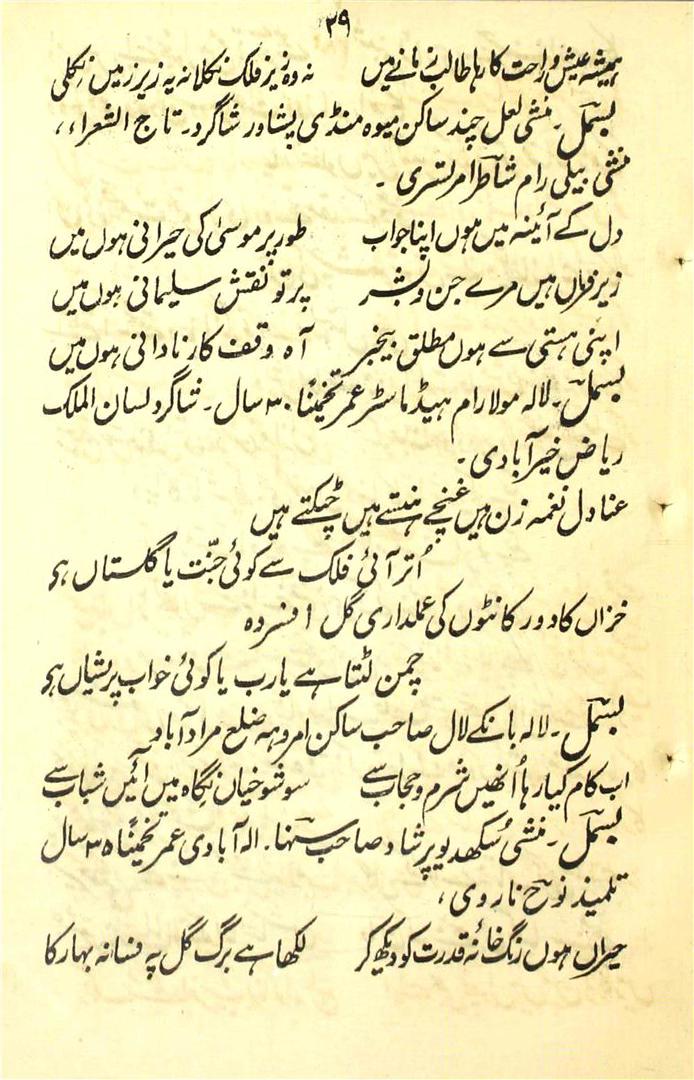 ۲۹
ہمیشہ عیش و راحت کا رہا طالب زمانے میں نہ وہ زیر فلک نکلا نہ یہ زیر زمیں نکلی
بسمل۔ منشی لعل چند ساکن میوہ منڈی پشاور شاگرد۔ تاج الشعراء،،
منشی بیلی رام شاطر امرتسری ۔
دل کے آئینہ میں ہوں اپنا جواب طور پر موسیٰ کی حیرانی ہوں میں
زیر فرماں ہیں مرے جن و بشر پرتو نقش سلیمانی ہوں میں
اپنی ہستی سے ہوں مطلق بیخبر آہ وقف کار نادانی ہوں میں
بسمل۔ لالہ مولا رام ہیڈ ماسٹر عمر تخمیناً ۳۰ سال۔ شاگرد لسان الملک
ریاض خیرآبادی۔
عنادل نغمہ زن ہیں غنچے ہنستے ہیں چٹکتے ہیں
اُتر آئی فلک سے کوئی جنّت یا گلستاں ہی
خزاں کا دور کانٹوں کی عملداری گل افسردہ
چمن لٹتا ہے یارب یا کوئی خواب پریشاں ہی
بسمل۔ لالہ بانکے لال صاحب ساکن امروہہ ضلع مرادآباد
اب کام کیا رہا اُنھیں شرم و حجاب سے سو شوخیاں نگاہ میں آئیں شباب سے
بسمل۔ منشی سُکھدیو پرشاد صاحب سنہا۔ الہ آبادی عمر تخمیناً ۳۵ سال
تلمیذ نوح ناروی،
حیراں ہوں رنگ خانۂ قدرت کو دیکھ کر لکھا ہے برگ گل پہ فسانہ بہار کا